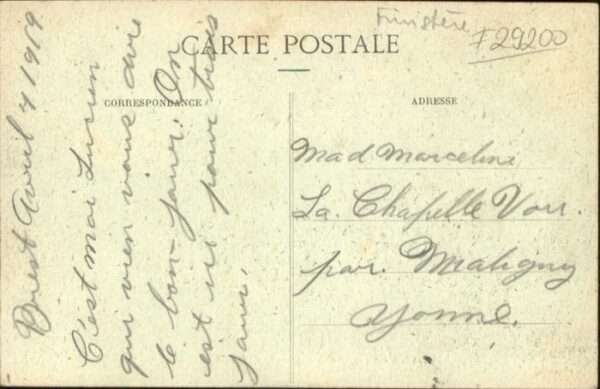 Finistère
F29200
CARTE POSTALE
CORRESPONDANCE
ADRESSE
Brest Avril 4 1919
C'est moi Lucien
qui vien vous dire
le bon jour. On
est ici pour trois
jour.
Mad Marceline
La Chapelle Vou.
par. Maligny
Yonne.